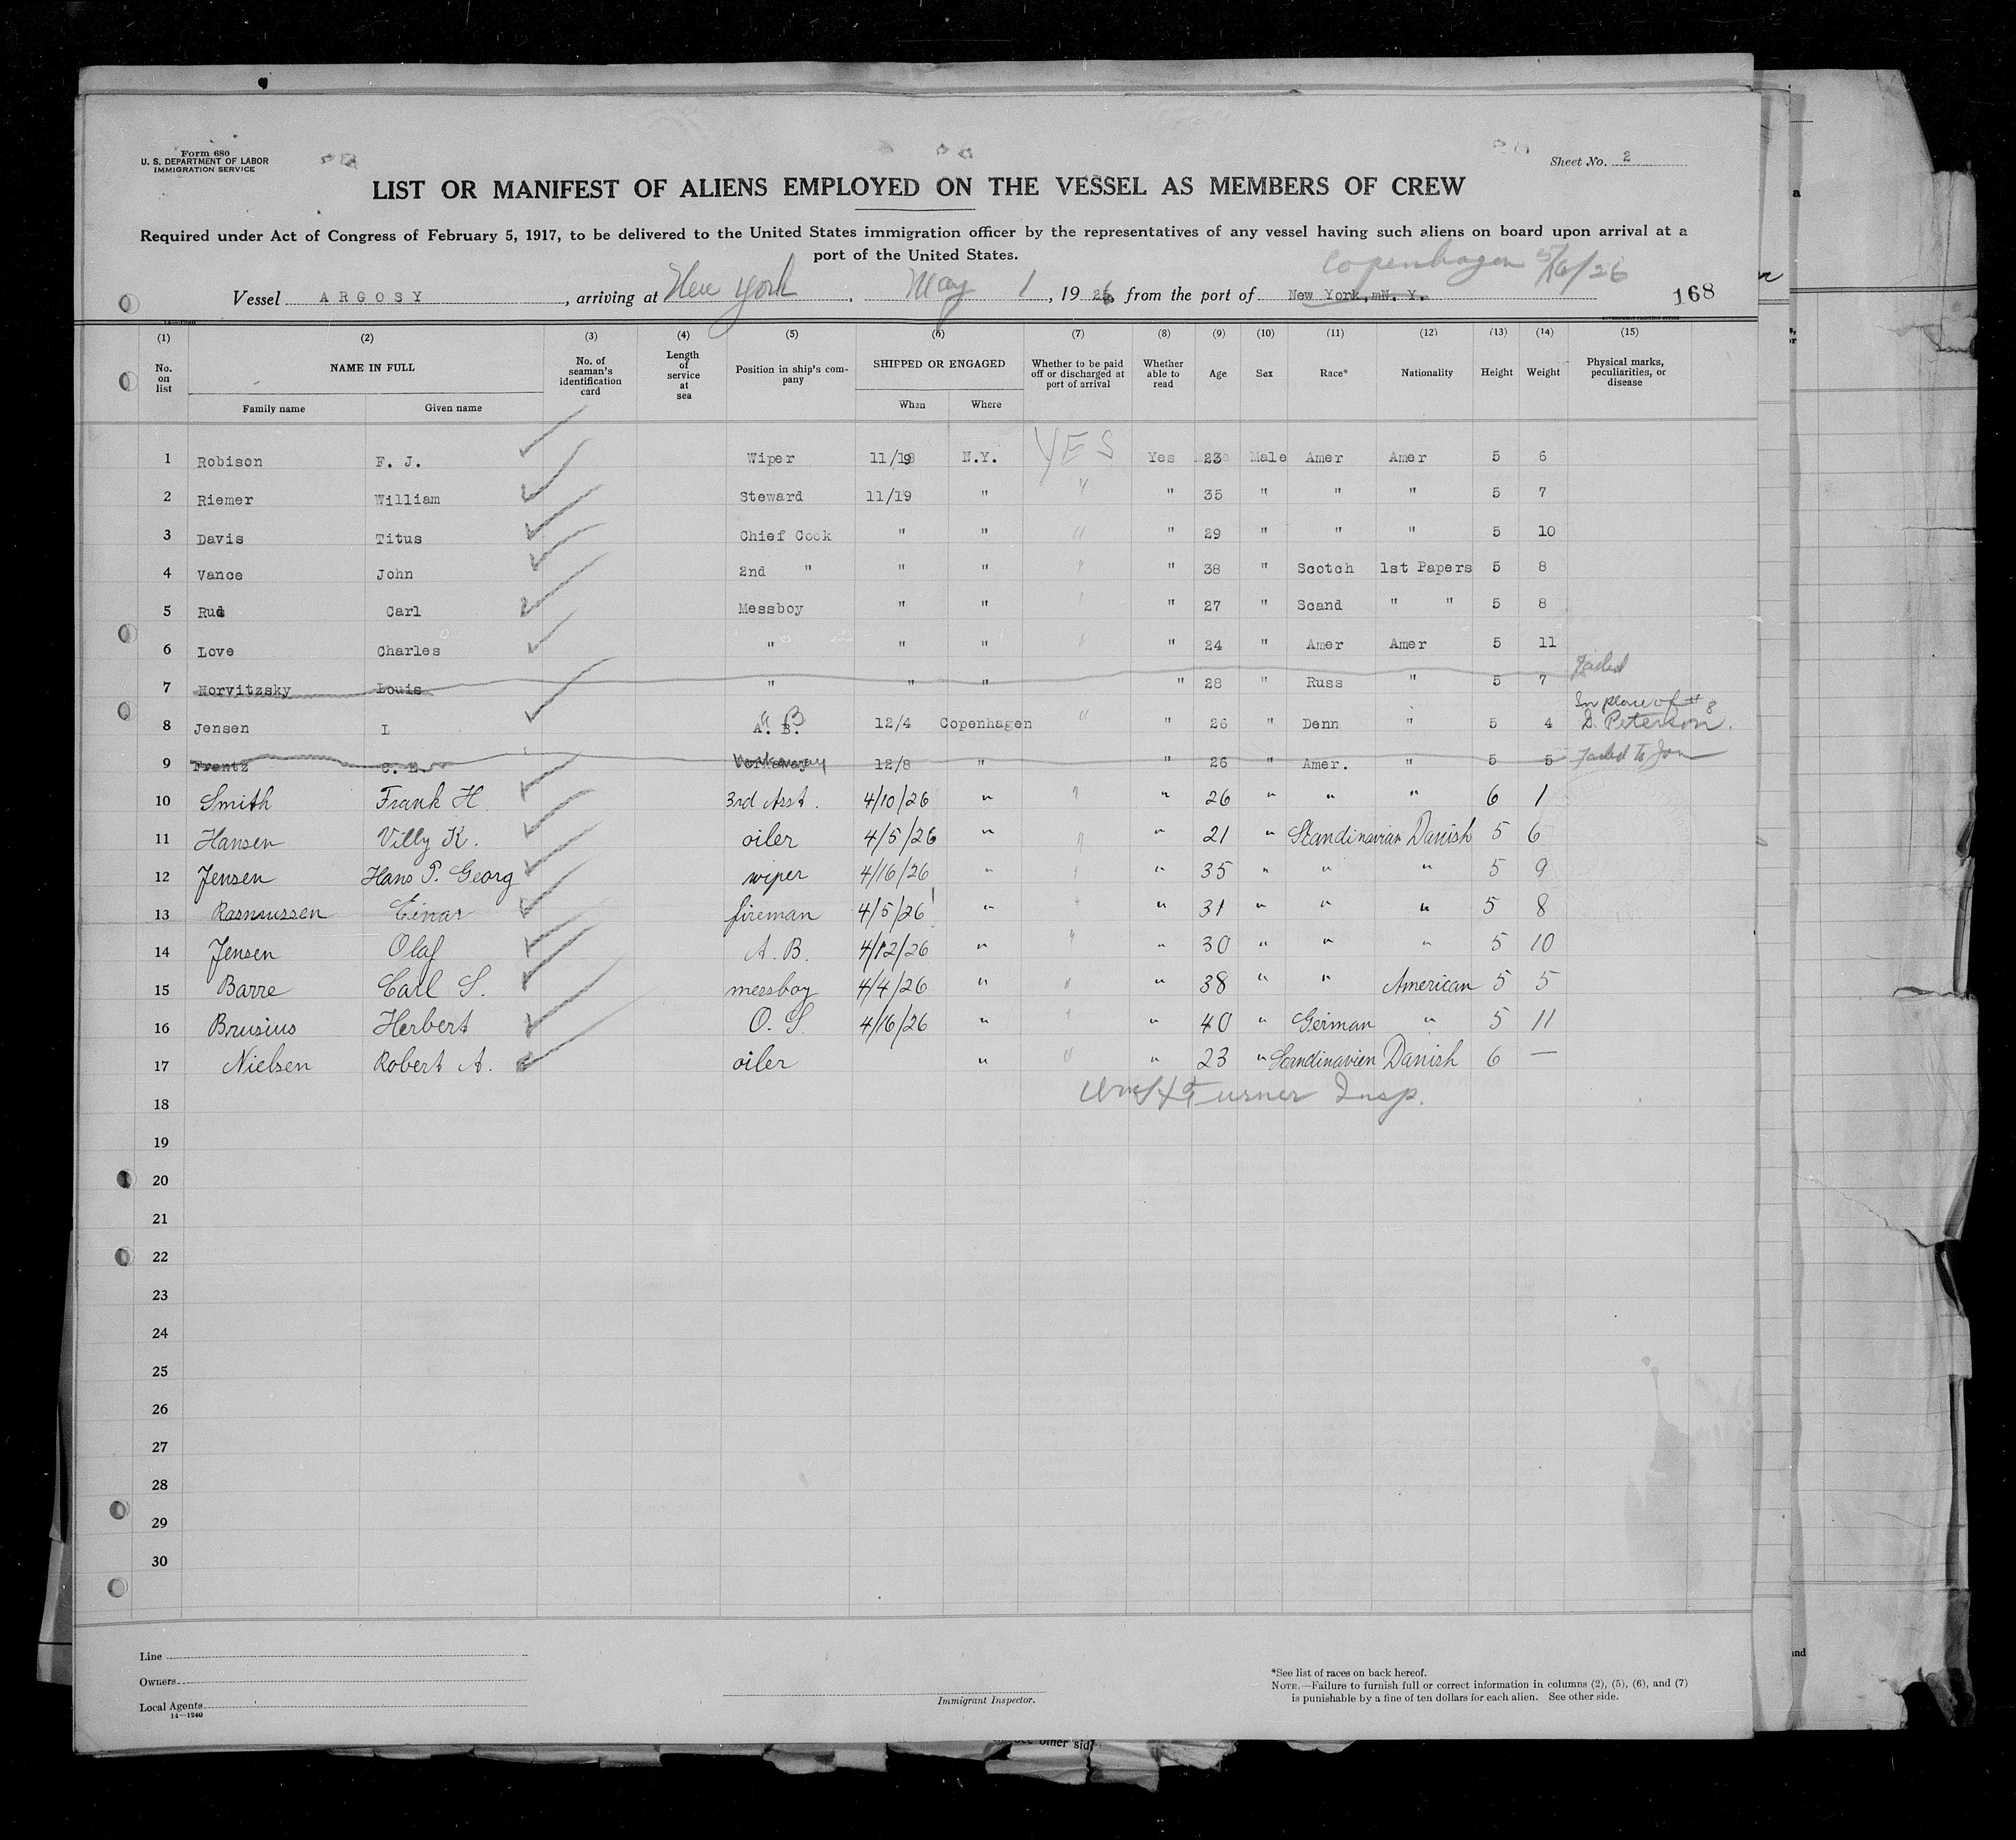 Form 680
U. S. DEPARTMENT OF LABOR
IMMIGRATION SERVICE
Sheet No. 2
LIST OR MANIFEST OF ALIENS EMPLOYED ON THE VESSEL AS MEMBERS OF CREW
Required under Act of Congress of February 5, 1917, to be delivered to the United States immigration officer by the representatives of any vessel having such aliens on board upon arrival at a
port of the United States.
Copenhagen
Vessel ARGOSY, arriving at New York, May 1, 1926, from the port of New York, N. Y.
168
(1) (2) (3) (4) (5) (6) (7) (8) (9) (10) (11) (12) (13) (14) (15)
No. on list NAME IN FULL No. of seaman's identification card Length of service at sea Position in ship's company SHIPPED OR ENGAGED Whether to be paid off or discharged at port of arrival Whether able to read Age Sex Race* Nationality Height Weight Physical marks, peculiarities, or disease
Family name Given name When Where
1 Robison F. J. Wiper N.Y. YES Yes 23 Male Amer Amer 5 6
2 Riemer William Steward 11/19 " " " 35 " " " 5 7
3 Davis Titus Chief Cook " " " " 29 " " " 5 10
4 Vance John 2nd " " " " " 38 " Scotch 1st Papers 5 8
5 Carl Messboy " " " " 27 " Scand " " 5 8
6 Love Charles " " " " " 24 " Amer Amer 5 11
Failed
7 Norvitzsky Louis " " " " 28 " Russ " 5 7
In place of # 8
8 Jensen L A. B. 12/4 Copenhagen " " 26 " Denn " 5 4 D. Peterson.
9 Frentz C. E. Workaway 12/8 " " 26 " Amer. " 5 5 Failed to Join
10 Smith Frank H. 3rd Asst. 4/10/26 " " " 26 " " " 6 1
11 Hansen Villy K. oiler 4/5/26 " " " 21 " Scandinavian Danish 5 6
12 Jensen Hans P. Georg wiper 4/16/26 " " " 35 " " " 5 9
13 Rasmussen Einar fireman 4/5/26 " " " 31 " " " 5 8
14 Jensen Olaf A. B. 4/12/26 " " " 30 " " " 5 10
15 Barre Carl S. messboy 4/4/26 " " " 38 " " American 5 5
16 Brusius Herbert O. S. 4/16/26 " " " 40 " German " 5 11
17 Nielsen Robert A. oiler " " " 23 " Scandinavien Danish 6 —
18 Wm H Turner Insp.
19
20
21
22
23
24
25
26
27
28
29
30
Line
Owners
Local Agents
14—1240
Immigrant Inspector.
*See list of races on back hereof.
NOTE.—Failure to furnish full or correct information in columns (2), (5), (6), and (7)
is punishable by a fine of ten dollars for each alien. See other side.